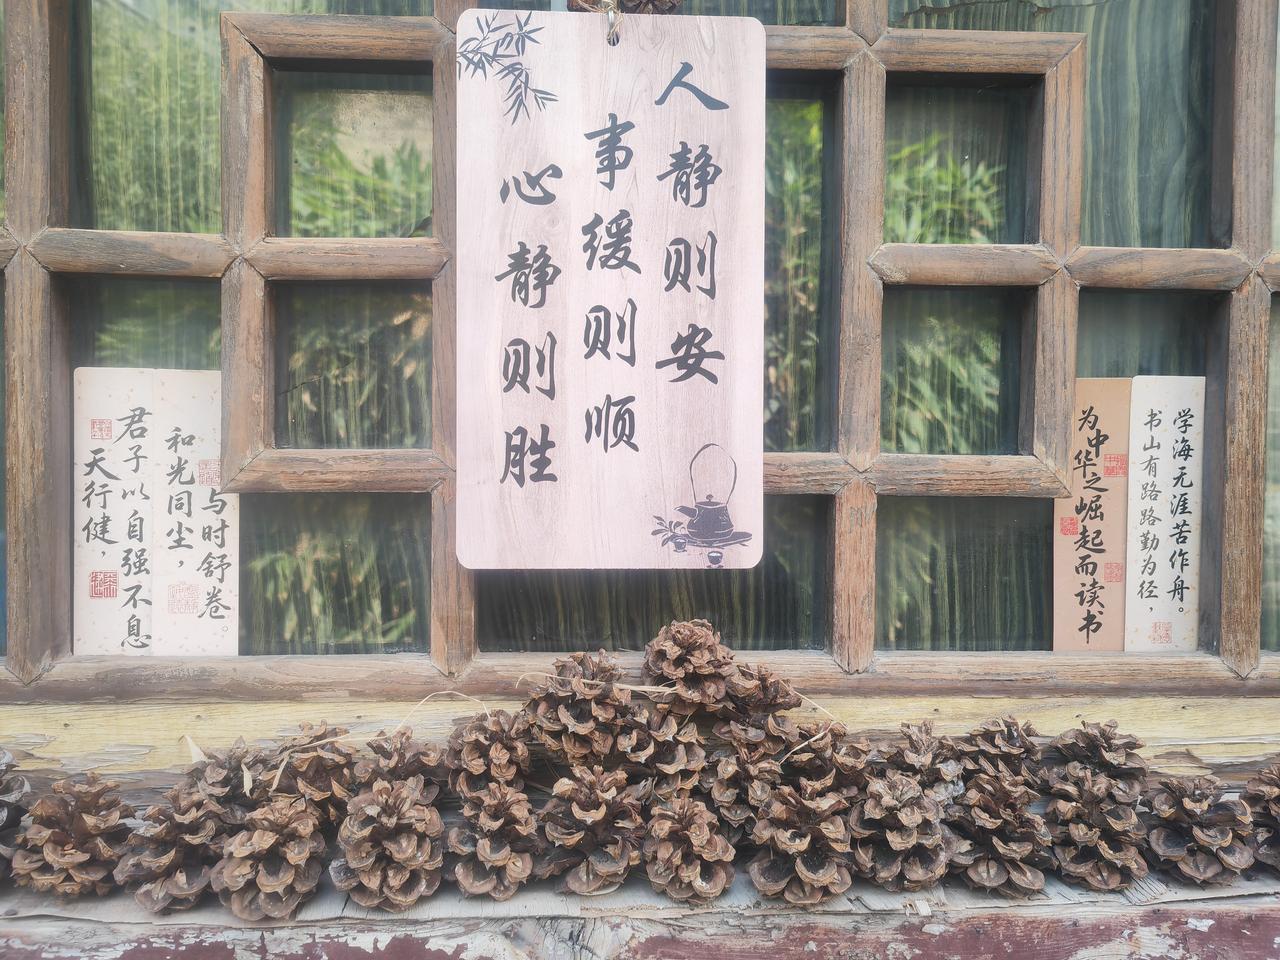 人静则安
事缓则顺
心静则胜
学海无涯苦作舟。
书山有路路勤为径，
为中华之崛起而读书
与时舒卷。
和光同尘，
君子以自强不息
天行健，